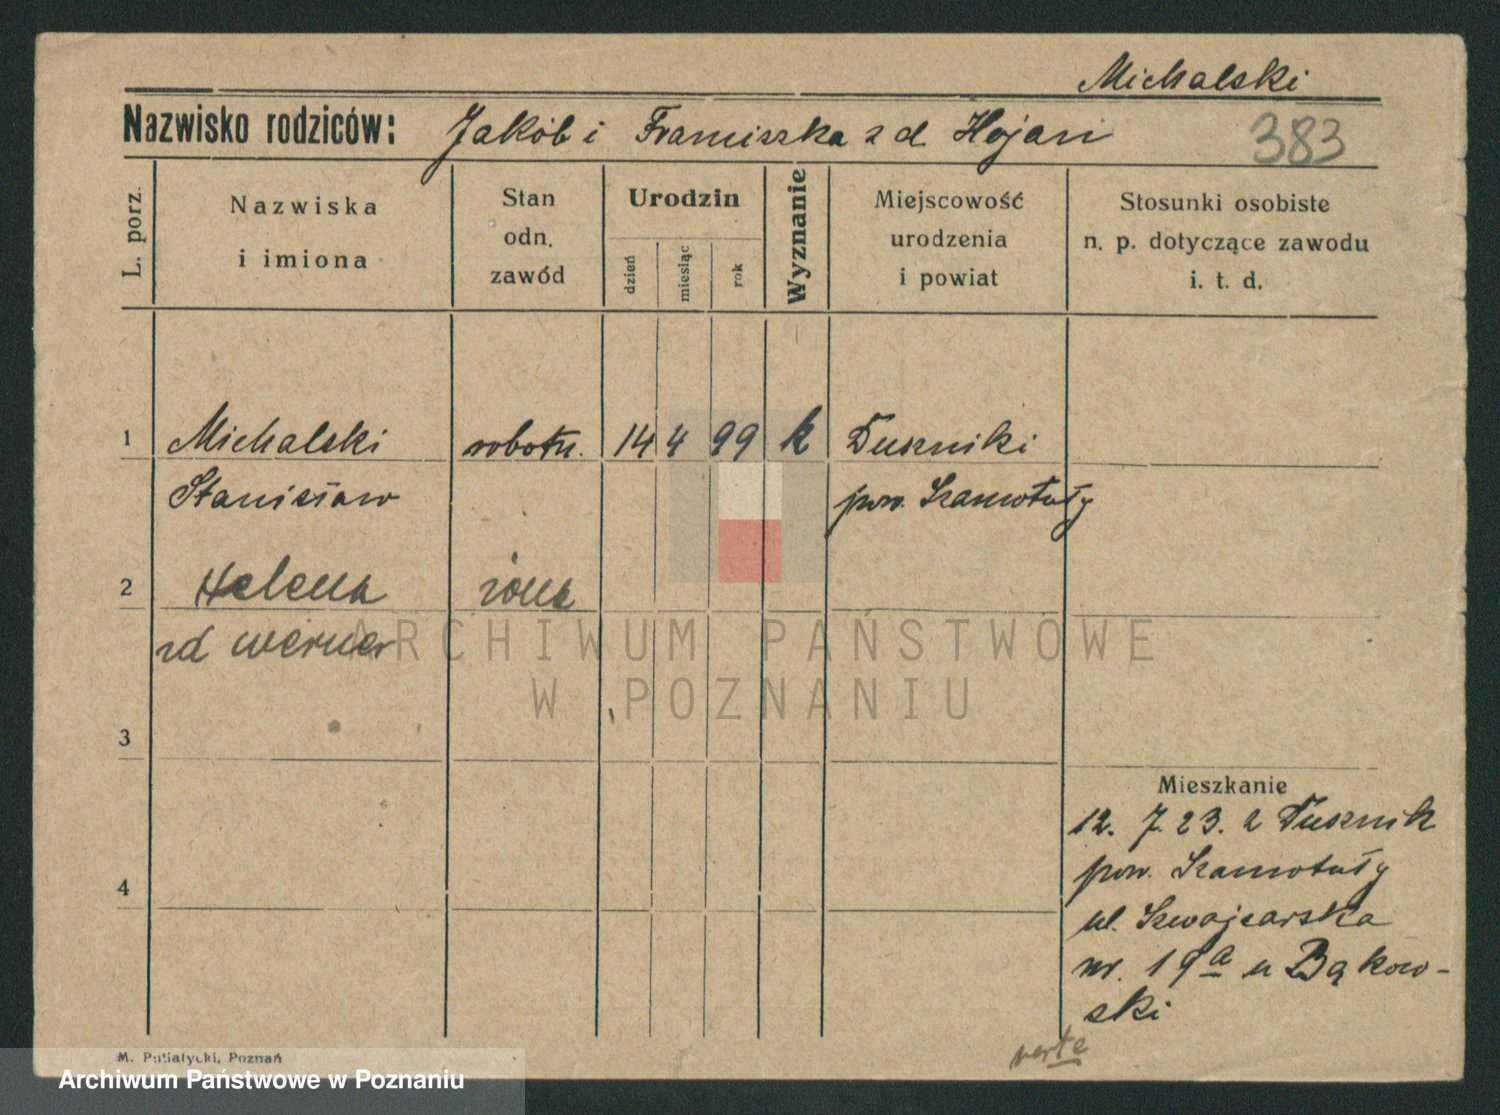 Michalski
Nazwisko rodziców: Jakób i Franciszka z d. Hojan
383
L. porz.
Nazwiska
i imiona
Stan
odn.
zawód
Urodzin
dzień
miesiąc
rok
Wyznanie
Miejscowość
urodzenia
i powiat
Stosunki osobiste
n. p. dotyczące zawodu
i. t. d.
1 Michalski robotn. 14 4 99 k Duszniki
Stanisław pow. Szamotuły
2 Helena żona
zd Werner
ARCHIWUM PAŃSTWOWE
W POZNANIU
3
Mieszkanie
12. 7. 23. z Dusznik
pow. Szamotuły
4
ul. Szwajcarska
nr. 19a u Bąkow-
ski
verte
M. Putiatycki, Poznań
Archiwum Państwowe w Poznaniu